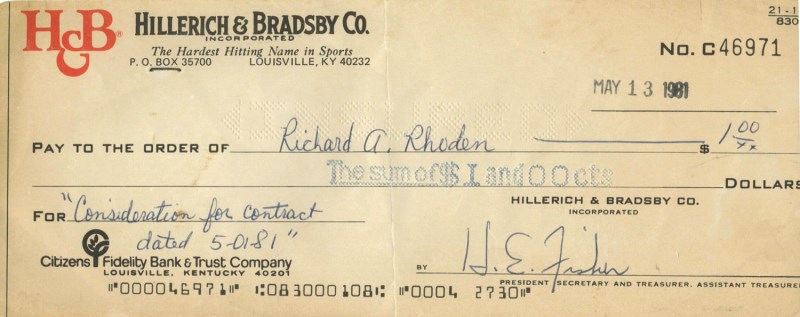 H&B HILLERICH & BRADSBY CO.
INCORPORATED
The Hardest Hitting Name in Sports
P. O. BOX 35700 LOUISVILLE, KY 40232
21-1
830
No. C46971
MAY 13 1981
PAY TO THE ORDER OF Richard A. Rhoden $ 1 00/xx
The sum of $ 1 and 00 cts DOLLARS
HILLERICH & BRADSBY CO.
INCORPORATED
FOR "Consideration for contract
dated 5-01-81"
Citizens Fidelity Bank & Trust Company
LOUISVILLE, KENTUCKY 40201
BY H. E. Fisher
PRESIDENT SECRETARY AND TREASURER. ASSISTANT TREASURER
⑈000046971⑈ ⑆083000108⑆ ⑈0004 2730⑈